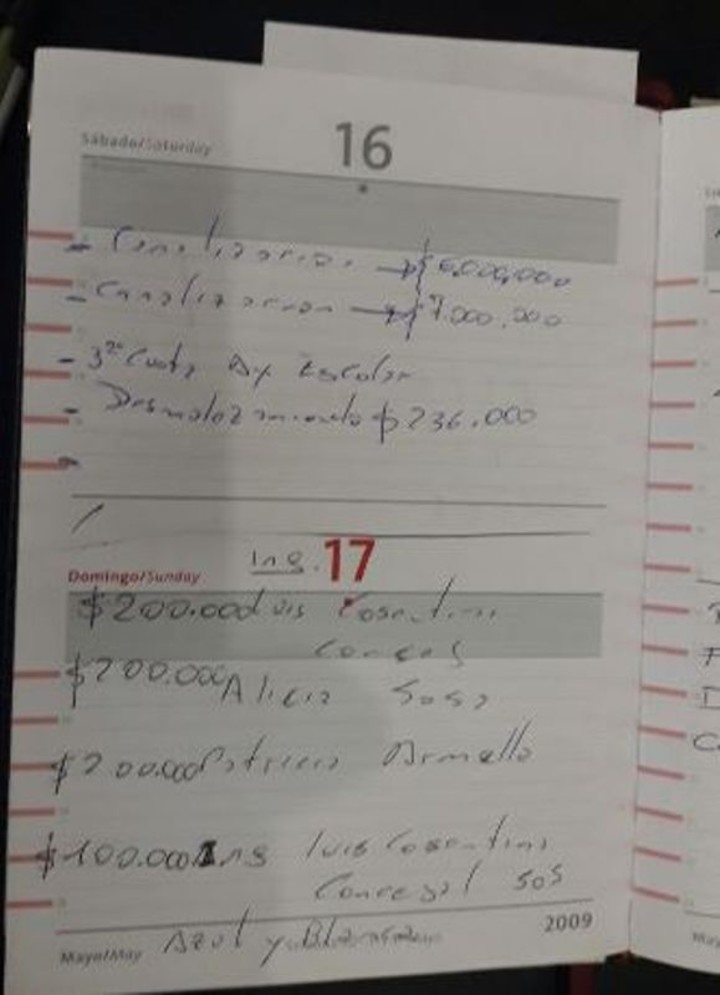 Sábado/Saturday
16
- Canalizacion → $ 6.000.000
- Canalizacion → $ 7.000.000
- 3ra Cuota Ay Escolar
- Desmalezamiento $ 236.000
-
Ing. 17
Domingo/Sunday
$200.000 Luis Cosentini
$200.000 Alicia Sosa
$200.000 Patricia Armello
$100.000 Ing Luis Cosentini
Concejal SOS
Azul y
2009
Mayo/May